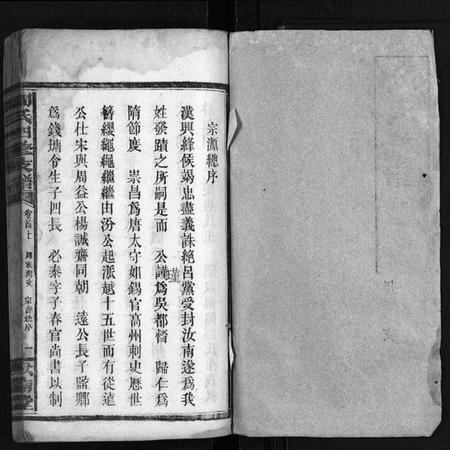 宗源總序
漢興絳侯竭忠盡義誅絕呂黨愛封汝南遂為我
姓發蹟之所嗣是而　公謹為吳都督　歸仁為
瑾
隋節度　崇昌為唐太守如錫官高州刺史歷世
簪纓繩繩繼繼由汾公起派越十五世而有從遠
公仕宋與周益公楊誠齋同朝　遠公長子監鄉
為錢塘令生子四長　必泰字子春官尚書以制
氏四修支譜
卷首上
宗源總序